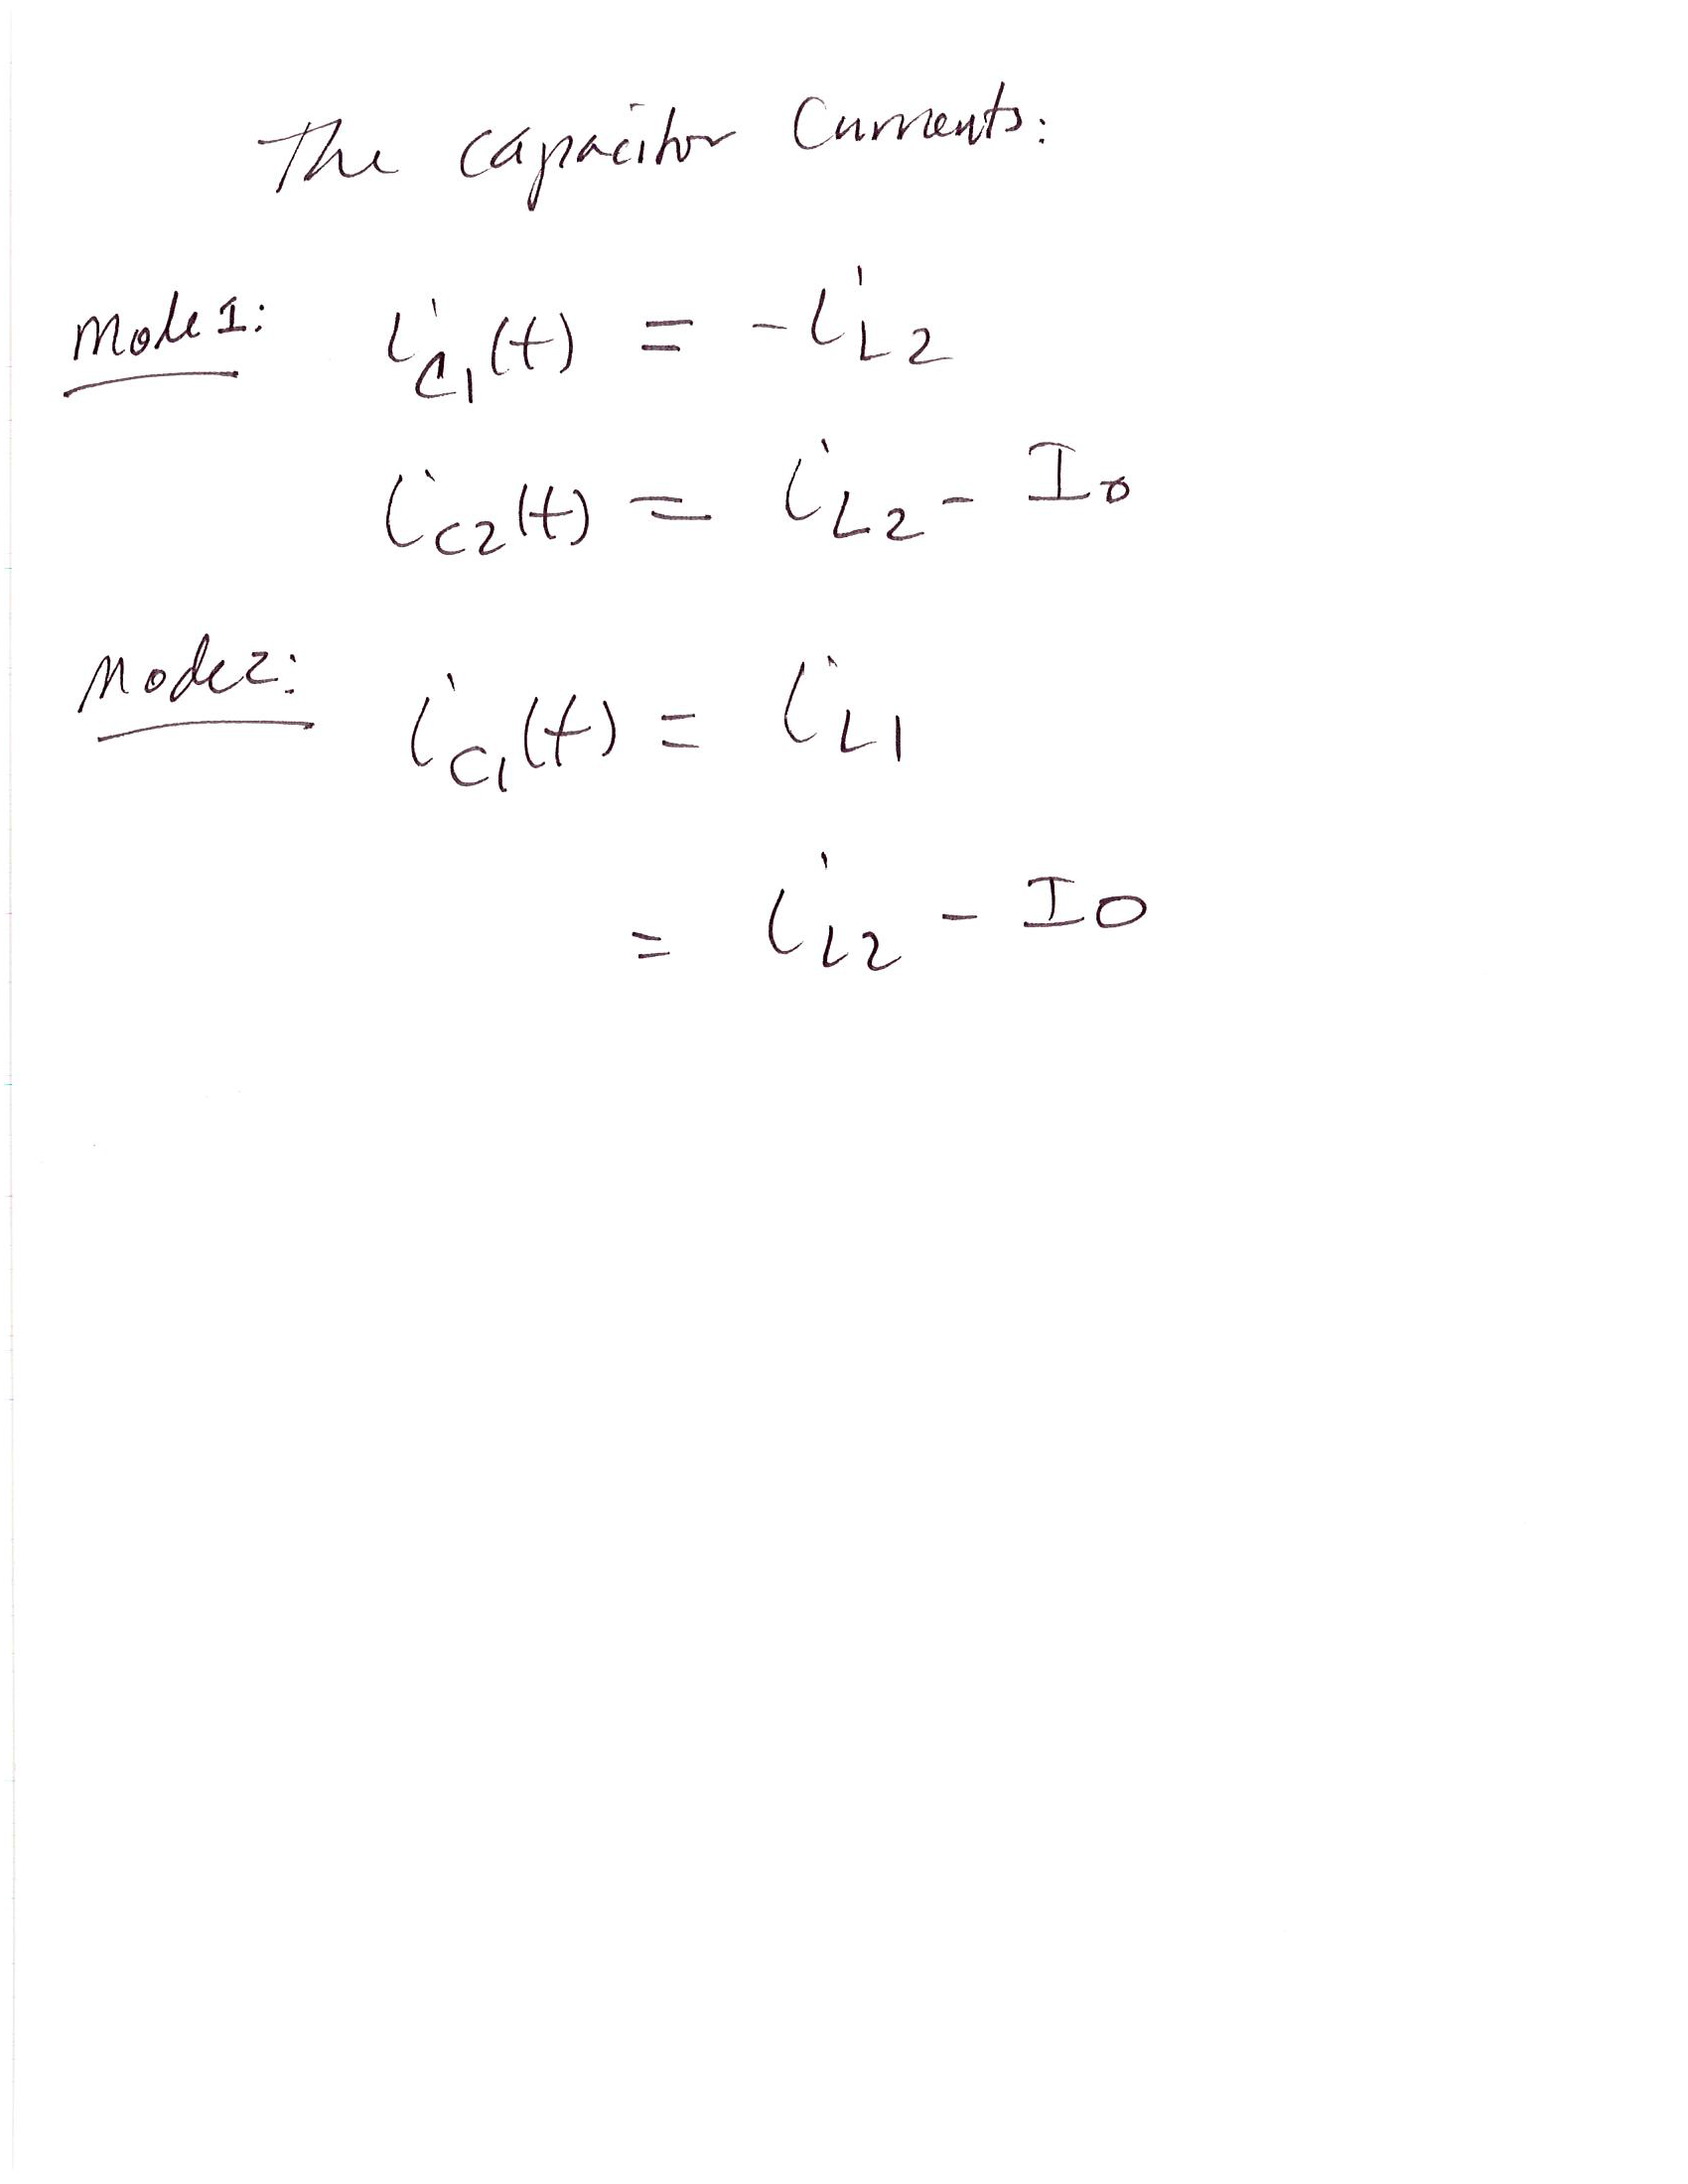 The capacitor Currents:
Mode 1: i_C1(t) = -i_L2
i_C2(t) = i_L2 - I_0
Mode 2: i_C1(t) = i_L1
= i_L2 - I_0